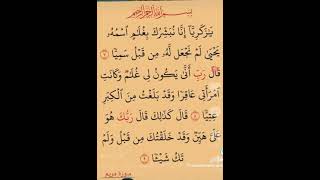 بسم الله الرحمن الرحيم
يَٰزَكَرِيَّآ إِنَّا نُبَشِّرُكَ بِغُلَٰمٍ ٱسْمُهُۥ
يَحْيَىٰ لَمْ نَجْعَل لَّهُۥ مِن قَبْلُ سَمِيًّا ٧
قَالَ رَبِّ أَنَّىٰ يَكُونُ لِى غُلَٰمٌ وَكَانَتِ
ٱمْرَأَتِى عَاقِرًا وَقَدْ بَلَغْتُ مِنَ ٱلْكِبَرِ
عِتِيًّا ٨ قَالَ كَذَٰلِكَ قَالَ رَبُّكَ هُوَ
عَلَىَّ هَيِّنٌ وَقَدْ خَلَقْتُكَ مِن قَبْلُ وَلَمْ
تَكُ شَيْـًٔا ٩
سورة مريم